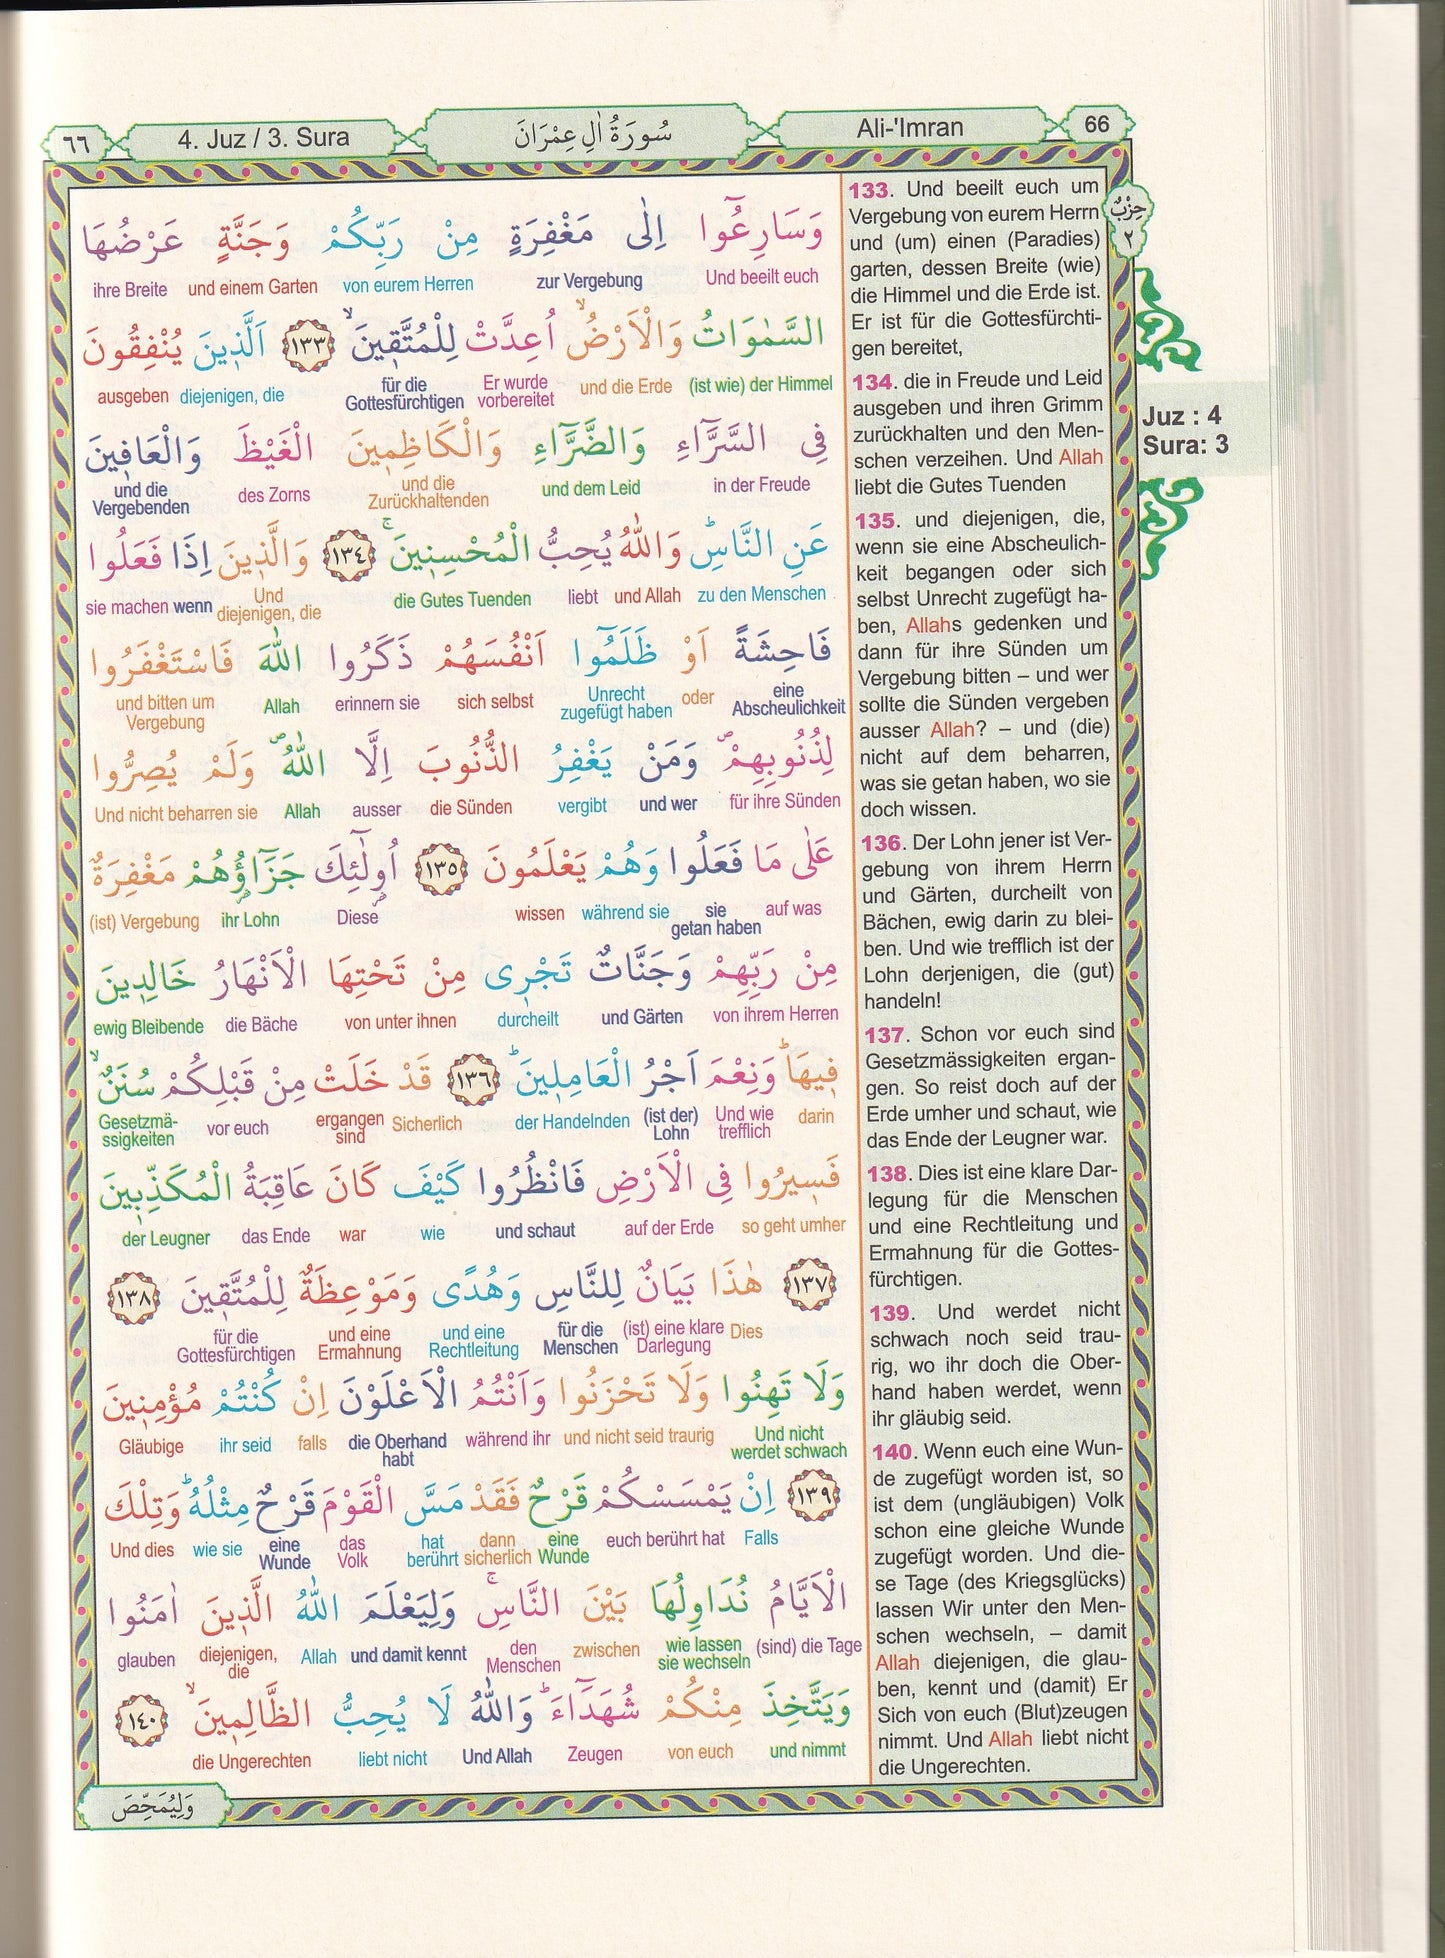 ٦٦
4. Juz / 3. Sura
سُورَةُ اٰلِ عِمْرَانَ
Ali-'Imran
66
وَسَارِعُٓوا اِلٰى مَغْفِرَةٍ مِنْ رَبِّكُمْ وَجَنَّةٍ عَرْضُهَا
Und beeilt euch zur Vergebung von eurem Herren und einem Garten ihre Breite
السَّمٰوَاتُ وَالْاَرْضُۙ اُعِدَّتْ لِلْمُتَّقٖينَۙ ﴿١٣٣﴾ اَلَّذٖينَ يُنْفِقُونَ
(ist wie) der Himmel und die Erde Er wurde vorbereitet für die Gottesfürchtigen diejenigen, die ausgeben
فِى السَّرَّٓاءِ وَالضَّرَّٓاءِ وَالْكَاظِمٖينَ الْغَيْظَ وَالْعَافٖينَ
in der Freude und dem Leid und die Zurückhaltenden des Zorns und die Vergebenden
عَنِ النَّاسِؕ وَاللّٰهُ يُحِبُّ الْمُحْسِنٖينَۚ ﴿١٣٤﴾ وَالَّذٖينَ اِذَا فَعَلُوا
zu den Menschen und Allah liebt die Gutes Tuenden Und diejenigen, die wenn sie machen
فَاحِشَةً اَوْ ظَلَمُٓوا اَنْفُسَهُمْ ذَكَرُوا اللّٰهَ فَاسْتَغْفَرُوا
eine Abscheulichkeit oder Unrecht zugefügt haben sich selbst erinnern sie Allah und bitten um Vergebung
لِذُنُوبِهِمْࣕ وَمَنْ يَغْفِرُ الذُّنُوبَ اِلَّا اللّٰهُࣕ وَلَمْ يُصِرُّوا
für ihre Sünden und wer vergibt die Sünden ausser Allah Und nicht beharren sie
عَلٰى مَا فَعَلُوا وَهُمْ يَعْلَمُونَ ﴿١٣٥﴾ اُولٰٓئِكَ جَزَٓاؤُهُمْ مَغْفِرَةٌ
auf was sie getan haben während sie wissen Diese ihr Lohn (ist) Vergebung
مِنْ رَبِّهِمْ وَجَنَّاتٌ تَجْرٖى مِنْ تَحْتِهَا الْاَنْهَارُ خَالِدٖينَ
von ihrem Herren und Gärten durcheilt von unter ihnen die Bäche ewig Bleibende
فٖيهَاؕ وَنِعْمَ اَجْرُ الْعَامِلٖينَؕ ﴿١٣٦﴾ قَدْ خَلَتْ مِنْ قَبْلِكُمْ سُنَنٌۙ
darin Und wie trefflich (ist der) Lohn der Handelnden Sicherlich ergangen sind vor euch Gesetzmä-ssigkeiten
فَسٖيرُوا فِى الْاَرْضِ فَانْظُرُوا كَيْفَ كَانَ عَاقِبَةُ الْمُكَذِّبٖينَ
so geht umher auf der Erde und schaut wie war das Ende der Leugner
﴿١٣٧﴾ هٰذَا بَيَانٌ لِلنَّاسِ وَهُدًى وَمَوْعِظَةٌ لِلْمُتَّقٖينَ ﴿١٣٨﴾
Dies (ist) eine klare Darlegung für die Menschen und eine Rechtleitung und eine Ermahnung für die Gottesfürchtigen
وَلَا تَهِنُوا وَلَا تَحْزَنُوا وَاَنْتُمُ الْاَعْلَوْنَ اِنْ كُنْتُمْ مُؤْمِنٖينَ
Und nicht werdet schwach und nicht seid traurig während ihr die Oberhand habt falls ihr seid Gläubige
﴿١٣٩﴾ اِنْ يَمْسَسْكُمْ قَرْحٌ فَقَدْ مَسَّ الْقَوْمَ قَرْحٌ مِثْلُهُؕ وَتِلْكَ
Falls euch berührt hat eine Wunde dann sicherlich hat berührt das Volk eine Wunde wie sie Und dies
الْاَيَّامُ نُدَاوِلُهَا بَيْنَ النَّاسِۚ وَلِيَعْلَمَ اللّٰهُ الَّذٖينَ اٰمَنُوا
(sind) die Tage wie lassen sie wechseln zwischen den Menschen und damit kennt Allah diejenigen, die glauben
وَيَتَّخِذَ مِنْكُمْ شُهَدَٓاءَؕ وَاللّٰهُ لَا يُحِبُّ الظَّالِمٖينَۙ ﴿١٤٠﴾
und nimmt von euch Zeugen Und Allah liebt nicht die Ungerechten
وَلِيُمَحِّصَ
133. Und beeilt euch um
Vergebung von eurem Herrn
und (um) einen (Paradies)
garten, dessen Breite (wie)
die Himmel und die Erde ist.
Er ist für die Gottesfürchti-
gen bereitet,
134. die in Freude und Leid
ausgeben und ihren Grimm
zurückhalten und den Men-
schen verzeihen. Und Allah
liebt die Gutes Tuenden
135. und diejenigen, die,
wenn sie eine Abscheulich-
keit begangen oder sich
selbst Unrecht zugefügt ha-
ben, Allahs gedenken und
dann für ihre Sünden um
Vergebung bitten – und wer
sollte die Sünden vergeben
ausser Allah? – und (die)
nicht auf dem beharren,
was sie getan haben, wo sie
doch wissen.
136. Der Lohn jener ist Ver-
gebung von ihrem Herrn
und Gärten, durcheilt von
Bächen, ewig darin zu blei-
ben. Und wie trefflich ist der
Lohn derjenigen, die (gut)
handeln!
137. Schon vor euch sind
Gesetzmässigkeiten ergan-
gen. So reist doch auf der
Erde umher und schaut, wie
das Ende der Leugner war.
138. Dies ist eine klare Dar-
legung für die Menschen
und eine Rechtleitung und
Ermahnung für die Gottes-
fürchtigen.
139. Und werdet nicht
schwach noch seid trau-
rig, wo ihr doch die Ober-
hand haben werdet, wenn
ihr gläubig seid.
140. Wenn euch eine Wun-
de zugefügt worden ist, so
ist dem (ungläubigen) Volk
schon eine gleiche Wunde
zugefügt worden. Und die-
se Tage (des Kriegsglücks)
lassen Wir unter den Men-
schen wechseln, – damit
Allah diejenigen, die glau-
ben, kennt und (damit) Er
Sich von euch (Blut)zeugen
nimmt. Und Allah liebt nicht
die Ungerechten.
حِزْبٌ
٢
Juz : 4
Sura: 3